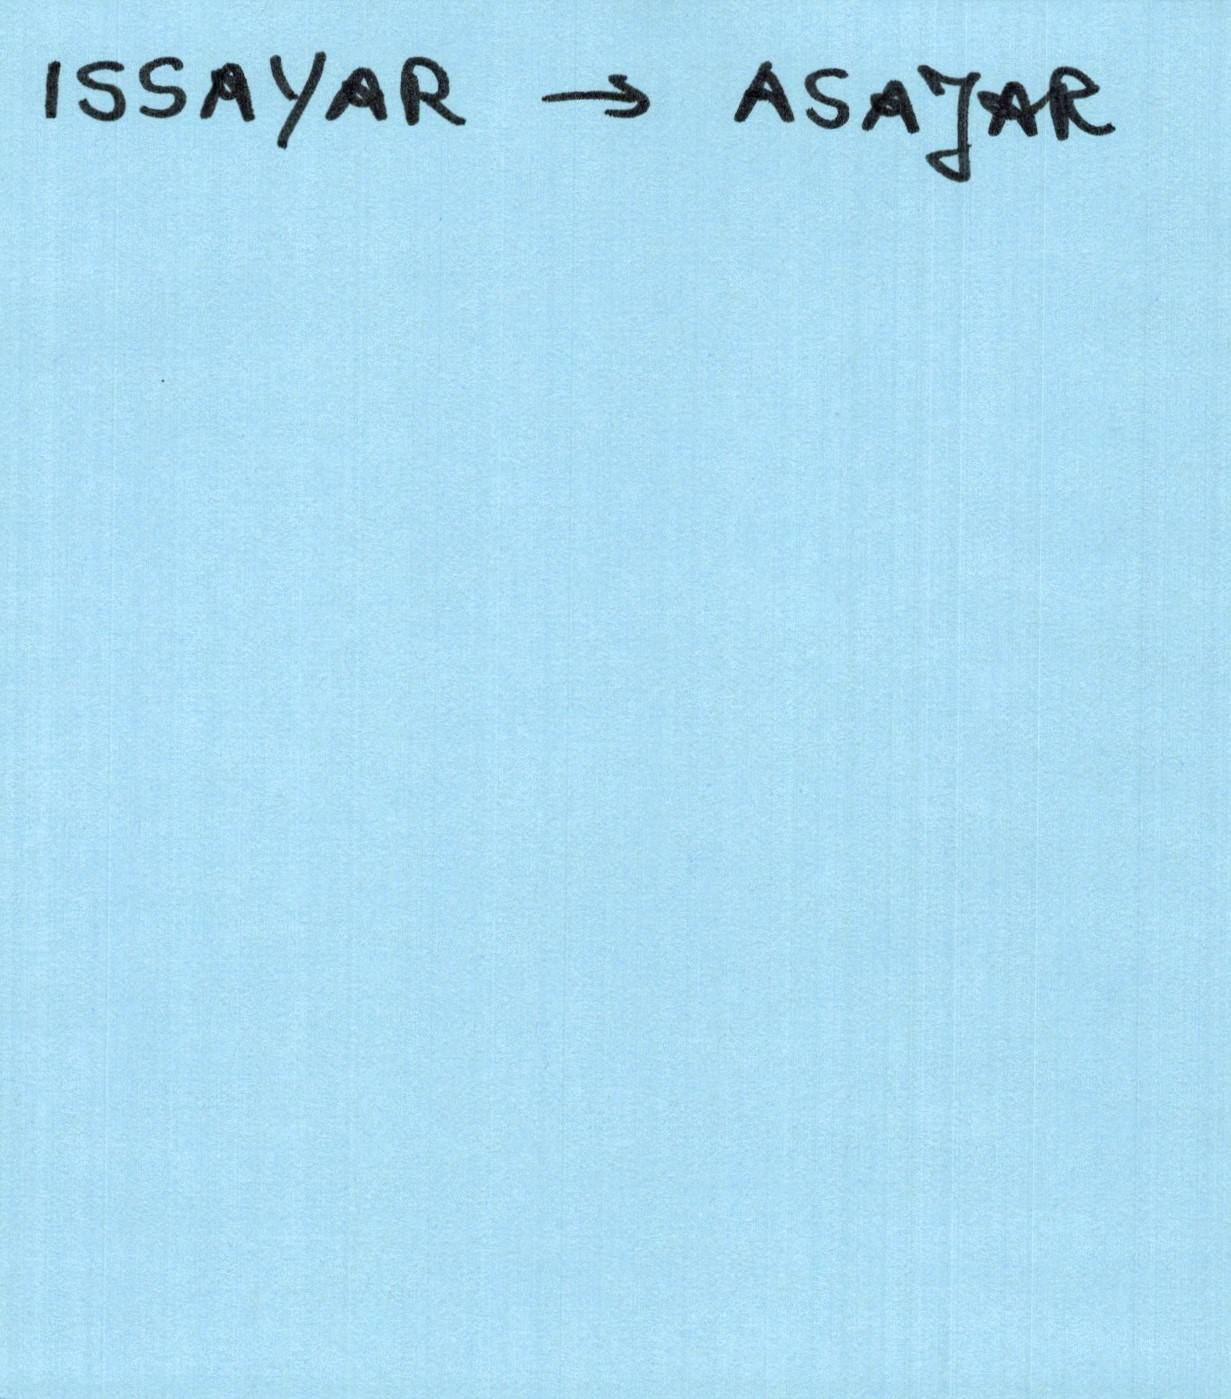 ISSAYAR → ASAJAR